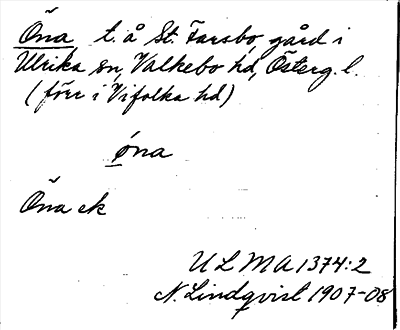 Öna, t. å St. Farsbo, gård i
Ulrika sn, Valkebo hd, Österg. l.
(förr i Vifolka hd)
øna
Öna ek
ULMA 1374:2
N. Lindqvist 1907-08